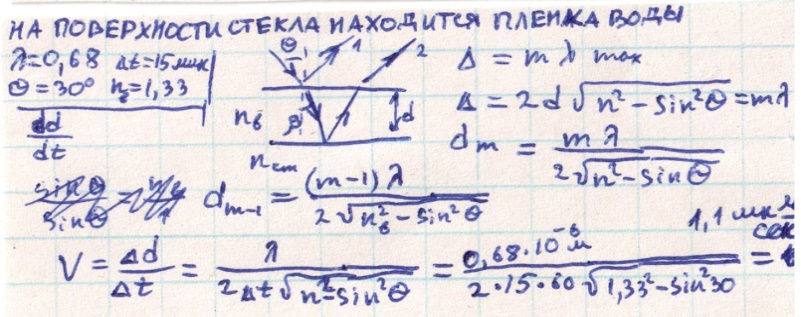 НА ПОВЕРХНОСТИ СТЕКЛА НАХОДИТСЯ ПЛЕНКА ВОДЫ
λ=0,68 Δt=15мин
Θ=30° nв=1,33
dd/dt
Θ 1 2
nв β d
nст
Δ = mλ max
Δ = 2d√(n²-sin²Θ) = mλ
dm = mλ / 2√(n²-sinΘ)
dm-1 = (m-1)λ / 2√(nв²-sin²Θ)
V = Δd/Δt = λ / 2Δt√(n²-sin²Θ) = 0,68·10⁻⁶м / 2·15·60√(1,33²-sin²30) =
1,1 мк м/сек